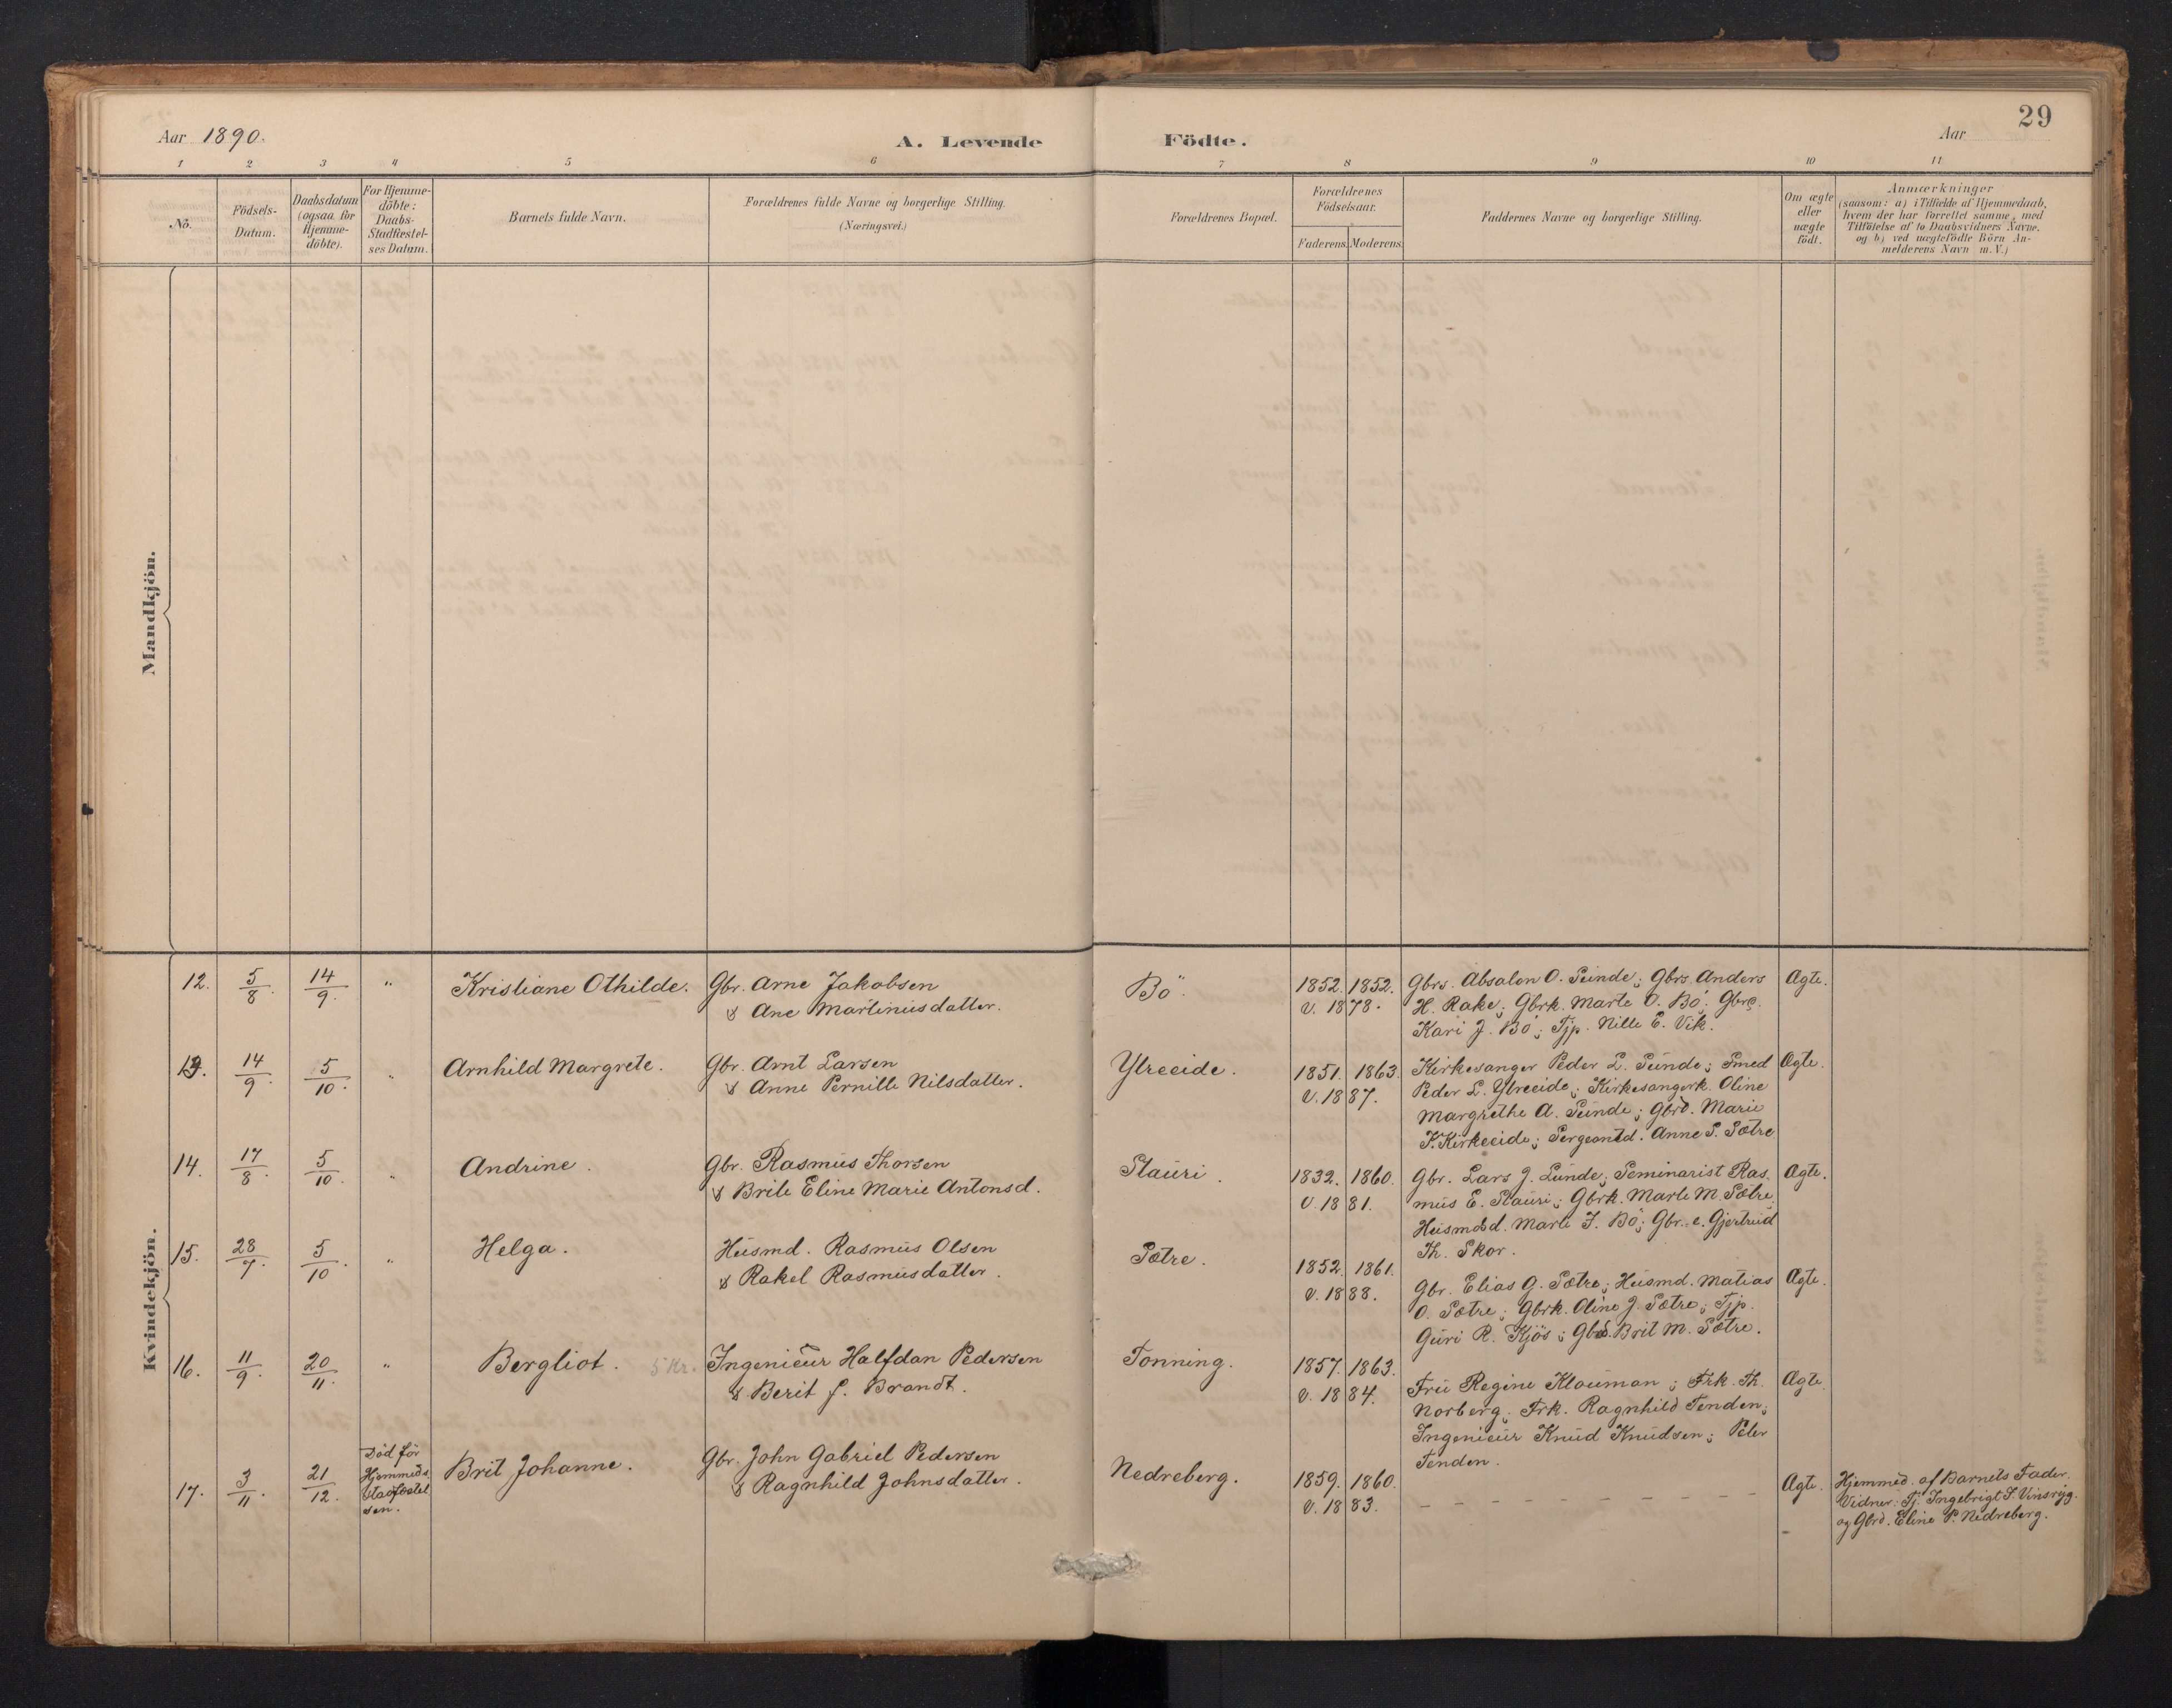 Aar 1890. A. Levende Födte. Aar 29
1 2 3 4 5 6 7 8 9 10 11
No.
Födsels-Datum.
Daabsdatum (ogsaa for Hjemme-döbte).
For Hjemme-döbte: Daabs-Stadfæstel-ses Datum.
Barnets fulde Navn.
Forældrenes fulde Navne og borgerlige Stilling.
(Næringsvei.)
Forældrenes Bopæl.
Forældrenes Födselsaar.
Faderens. Moderens.
Faddernes Navne og borgerlige Stilling.
Om ægte eller uægte födt.
Anmærkninger
(saasom: a) i Tilfælde af Hjemmedaab,
hvem der har forrettet samme, med
Tilföielse af to Daabsvidners Navne,
og b) ved uægtefödte Börn An-
melderens Navn m. V.)
Mandkjön.
Kvindekjön.
12. 5/8. 14/9. " Kristiane Othilde. Gbr. Arne Jakobsen
& Ane Martinusdatter.
Bö. 1852. 1852.
v. 1878.
Gbrs. Absalon O. Sunde; Gbrs. Anders
H. Rake; Gbrk. Marte O. Bö; Gbre.
Kari J. Bö; Tjp. Nille E. Vik.
Ægte.
13. 14/9. 5/10. " Arnhild Margrete. Gbr. Arnt Larsen
& Anne Pernille Nilsdatter.
Ytreeide. 1851. 1863.
v. 1887.
Kirkesanger Peder L. Sunde; Smed
Peder L. Ytreeide; Kirkesangerk. Oline
Margrethe A. Sunde; Gbrd. Marie
K. Kirkeeide; Sergeantd. Anne S. Sætre.
Ægte.
14. 17/8. 5/10. " Andrine. Gbr. Rasmus Thorsen
& Brite Eline Marie Antonsd.
Stauri. 1832. 1860.
v. 1881.
Gbr. Lars J. Lunde; Seminarist Ras-
mus E. Stauri; Gbrk. Marte M. Sætre;
Husmdsd. Marte J. Bö; Gbr. e. Gjertrud
Th. Skor.
Ægte.
15. 28/7. 5/10. " Helga. Husmd. Rasmus Olsen
& Rakel Rasmusdatter.
Sætre. 1852. 1861.
v. 1888.
Gbr. Elias G. Sætre; Husmd. Matias
O. Sætre; Gbrk. Oline J. Sætre; Tjp.
Guri R. Kjös; Gbrd. Brit M. Sætre.
Ægte.
16. 11/9. 20/11. " Bergliot. 5 Kr. Ingeniéur Halfdan Pedersen
& Berit f. Brandt.
Tonning. 1857. 1863.
v. 1884.
Fru Regine Klouman; Frk. Th.
Norberg; Frk. Ragnhild Tenden;
Ingeniéur Knud Knudsen; Peter
Tenden.
Ægte.
17. 3/11. 21/12. Död för
Hjemmeds.
stadfæstel
sen.
Brit Johanne. Gbr. John Gabriel Pedersen
& Ragnhild Johnsdatter.
Nedreberg. 1859. 1860.
v. 1883.
– – – – – – – – – –
Ægte.
Hjemmed. af Barnets Fader.
Vidner: Tj. Ingebrigt S. Vinsryg.
og Gbrd. Eline P. Nedreberg.